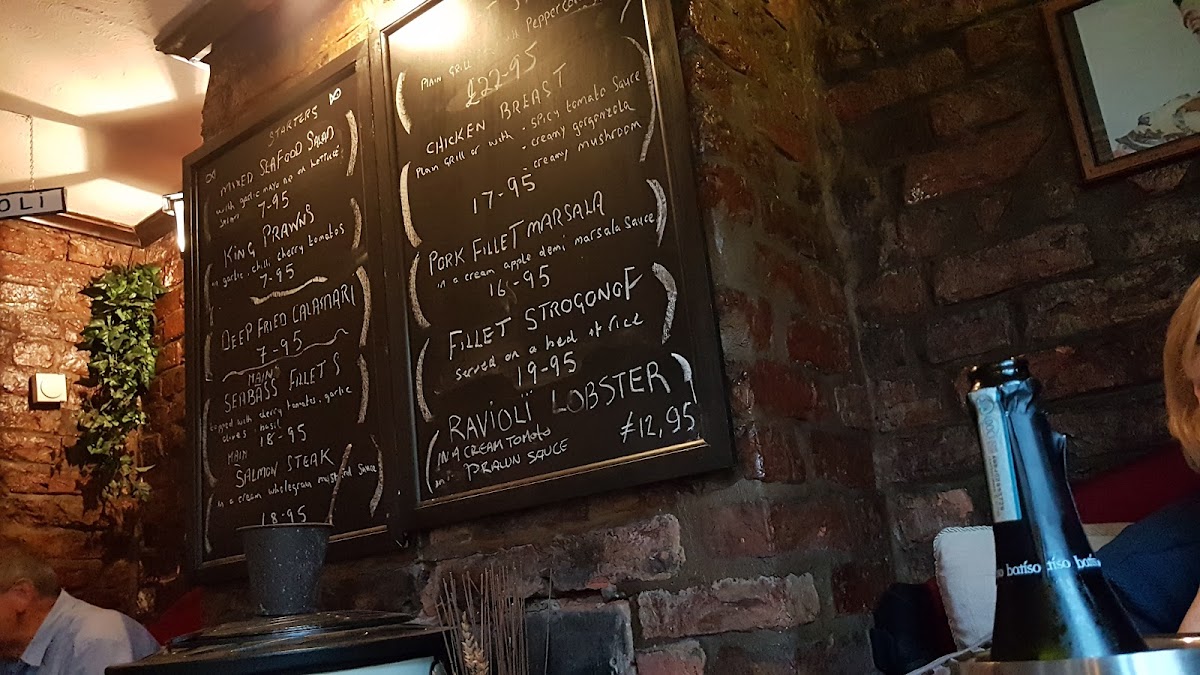 OLI
STARTERS
MIXED SEAFOOD SALAD
with garlic mayo on lettuce
7-95
KING PRAWNS
garlic, chilli, cherry tomatos
7-95
DEEP FRIED CALAMARI
7-95
MAIN
SEABASS FILLETS
topped with cherry tomatos, garlic
olives basil
18-95
MAIN
SALMON STEAK
in a cream wholegrain mustard sauce
18-95
PLAIN GRILL
£22-95
CHICKEN BREAST
Plain Grill or with - spicy tomato sauce
- creamy gorgonzola
- creamy mushroom
17-95
PORK FILLET MARSALA
in a cream apple demi marsala sauce
16-95
FILLET STROGONOF
served on a bed of rice
19-95
RAVIOLI LOBSTER
IN A CREAM TOMATO
PRAWN SAUCE
£12,95
batíso